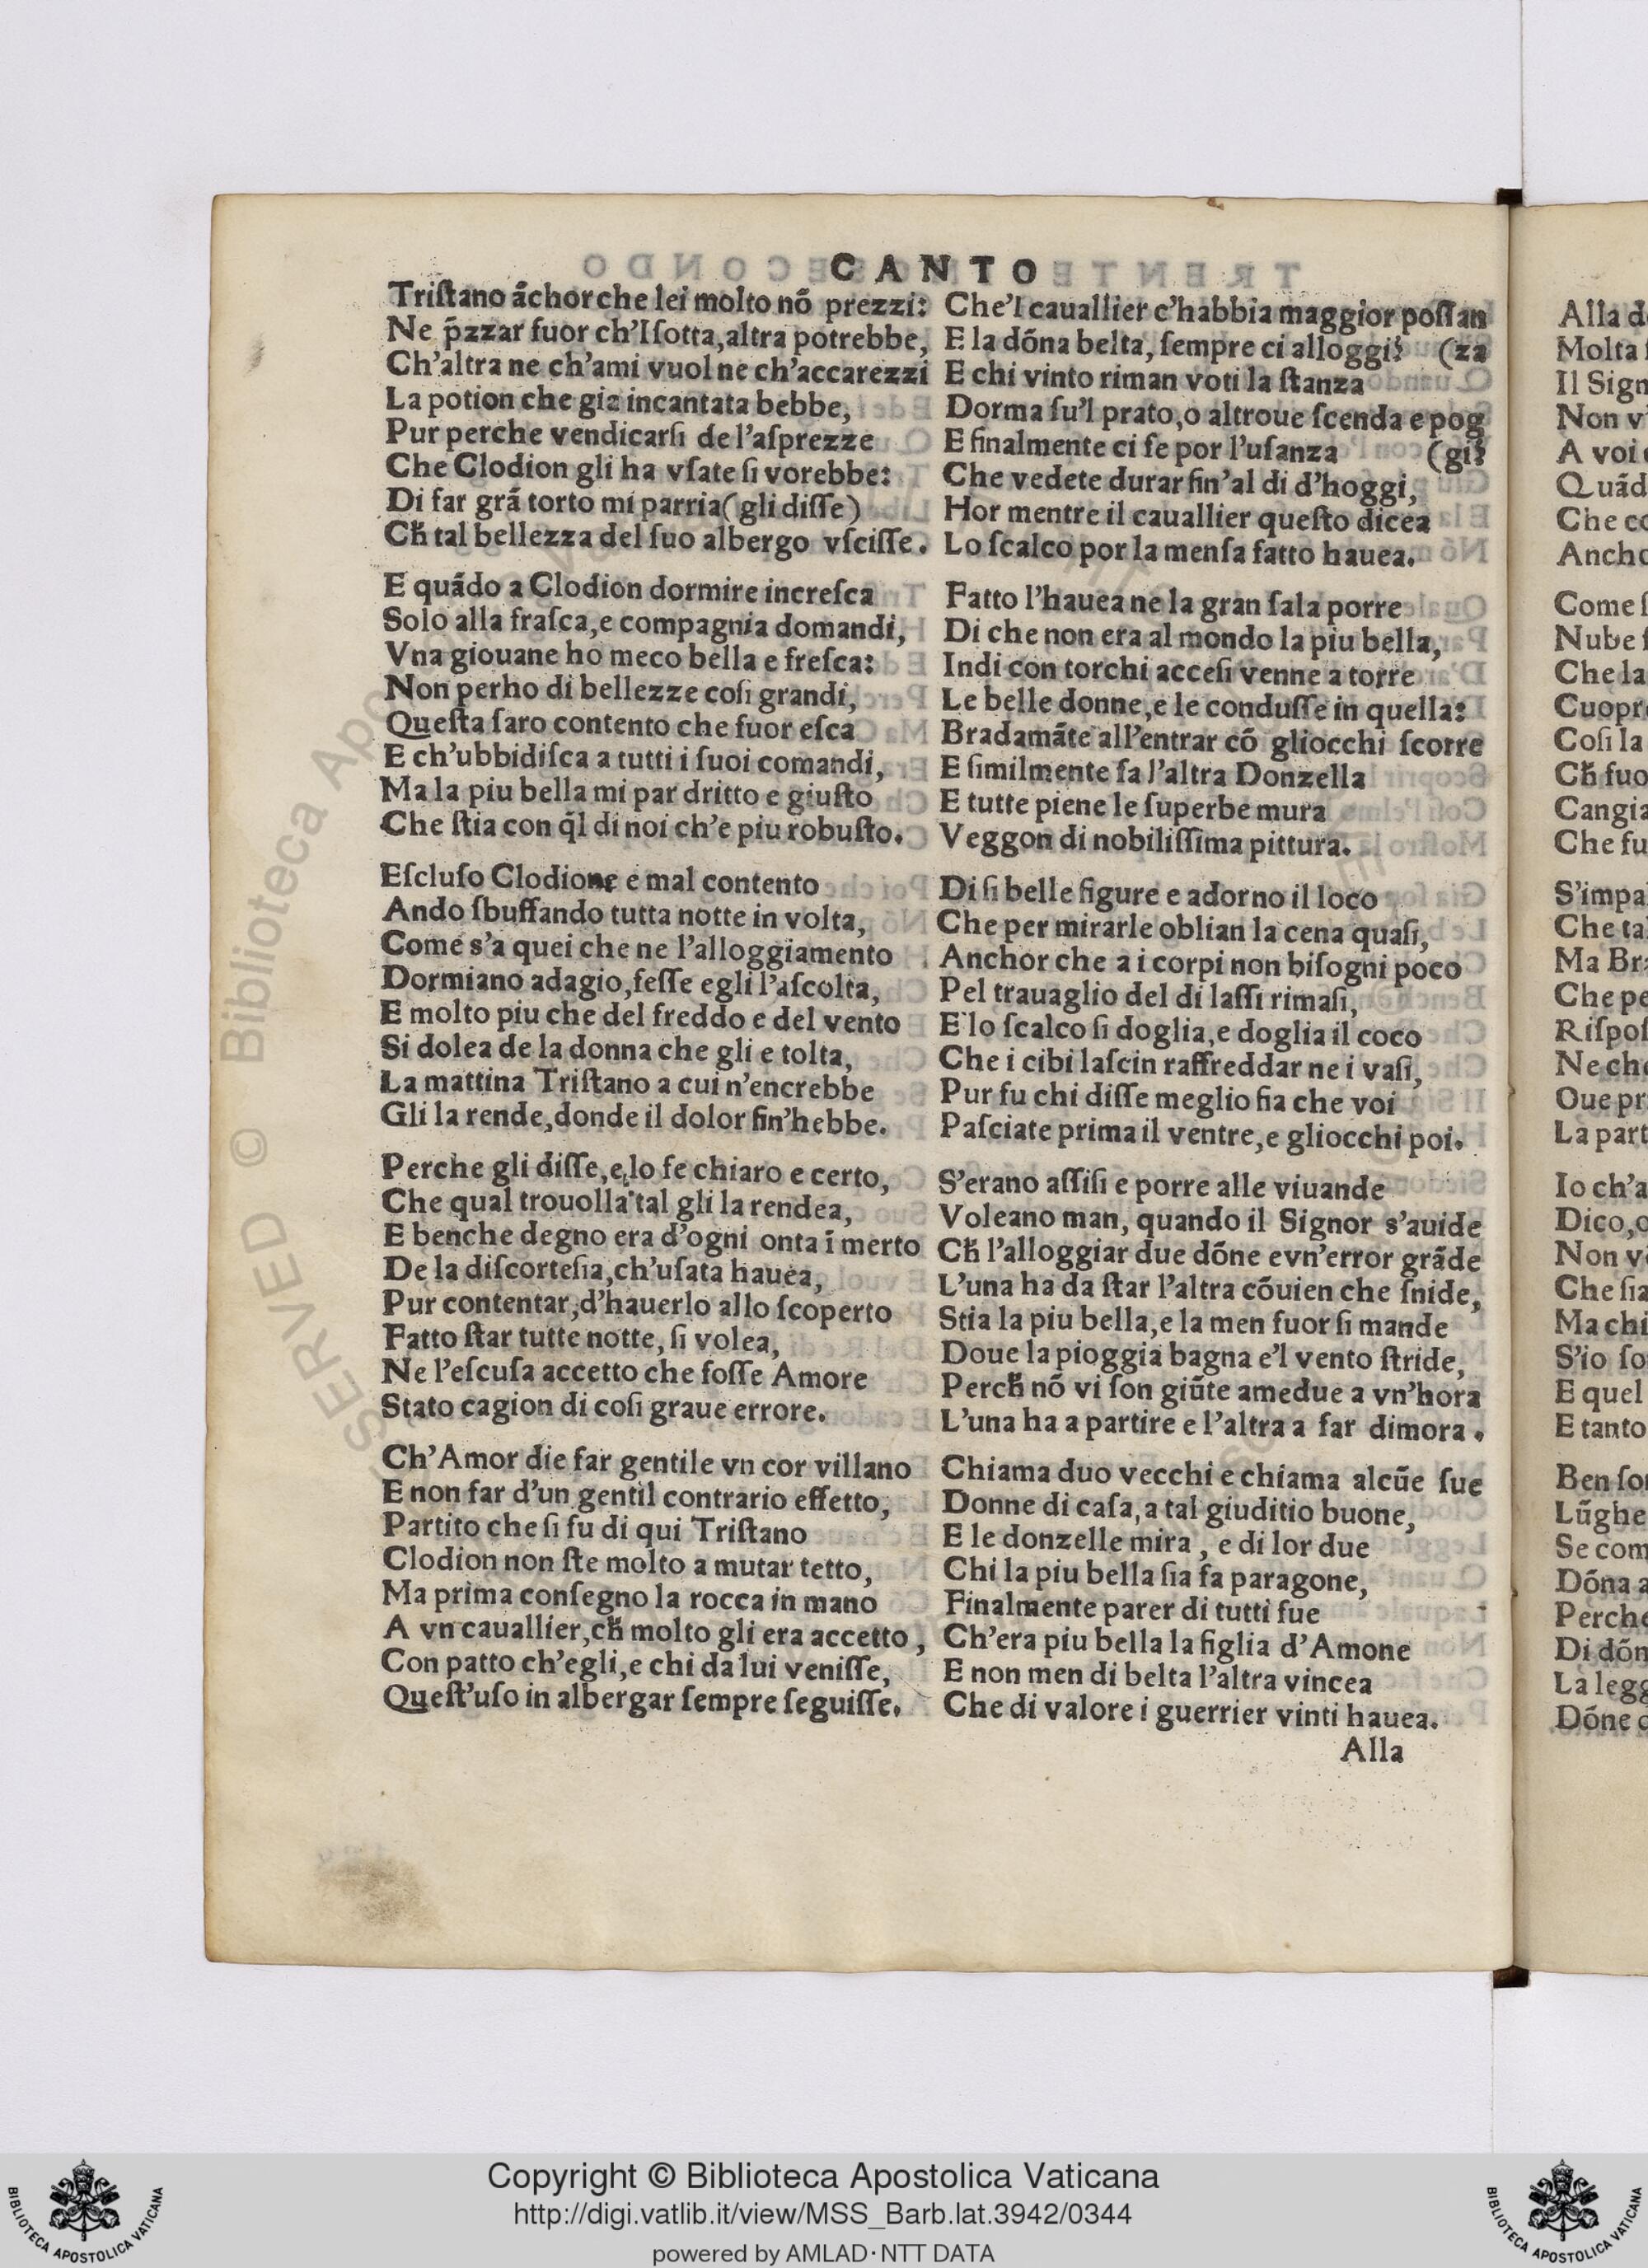 CANTO
Triſtano ãchorche lei molto nõ prezzi:
Ne p̃zzar fuor ch'Iſotta,altra potrebbe,
Ch'altra ne ch'ami vuol ne ch'accarezzi
La potion che gia incantata bebbe,
Pur perche vendicarſi de l'aſprezze
Che Clodion gli ha vſate ſi vorebbe:
Di far grã torto mi parria(gli diſſe)
Cħ tal bellezza del ſuo albergo vſciſſe.
E quãdo a Clodion dormire increſca
Solo alla fraſca,e compagnia domandi,
Vna giouane ho meco bella e freſca:
Non perho di bellezze coſi grandi,
Queſta ſaro contento che fuor eſca
E ch'ubbidiſca a tutti i ſuoi comandi,
Ma la piu bella mi par dritto e giuſto
Che ſtia con q̃l di noi ch'e piu robuſto.
Eſcluſo Clodione e mal contento
Ando ſbuffando tutta notte in volta,
Come s'a quei che ne l'alloggiamento
Dormiano adagio,feſſe egli l'aſcolta,
E molto piu che del freddo e del vento
Si dolea de la donna che gli e tolta,
La mattina Triſtano a cui n'encrebbe
Gli la rende,donde il dolor fin'hebbe.
Perche gli diſſe,e lo fe chiaro e certo,
Che qual trouolla tal gli la rendea,
E benche degno era d'ogni onta ĩ merto
De la diſcorteſia,ch'uſata hauea,
Pur contentar,d'hauerlo allo ſcoperto
Fatto ſtar tutte notte, ſi volea,
Ne l'eſcuſa accetto che foſſe Amore
Stato cagion di coſi graue errore.
Ch'Amor die far gentile vn cor villano
E non far d'un gentil contrario effetto,
Partito che ſi fu di qui Triſtano
Clodion non ſte molto a mutar tetto,
Ma prima conſegno la rocca in mano
A vn cauallier,cħ molto gli era accetto,
Con patto ch'egli,e chi da lui veniſſe,
Queſt'uſo in albergar ſempre ſeguiſſe.
Che'l cauallier c'habbia maggior poſſan
E la dõna belta, ſempre ci alloggi: (za
E chi vinto riman voti la ſtanza
Dorma ſu'l prato,o altroue ſcenda e pog
E finalmente ci fe por l'uſanza (gi:
Che vedete durar fin'al di d'hoggi,
Hor mentre il cauallier queſto dicea
Lo ſcalco por la menſa fatto hauea.
Fatto l'hauea ne la gran ſala porre
Di che non era al mondo la piu bella,
Indi con torchi acceſi venne a torre
Le belle donne,e le conduſſe in quella:
Bradamãte all'entrar cõ gliocchi ſcorre
E ſimilmente fa l'altra Donzella
E tutte piene le ſuperbe mura
Veggon di nobiliſſima pittura.
Di ſi belle figure e adorno il loco
Che per mirarle oblian la cena quaſi,
Anchor che a i corpi non biſogni poco
Pel trauaglio del di laſſi rimaſi,
E lo ſcalco ſi doglia,e doglia il coco
Che i cibi laſcin raffreddar ne i vaſi,
Pur fu chi diſſe meglio fia che voi
Paſciate prima il ventre,e gliocchi poi.
S'erano aſſiſi e porre alle viuande
Voleano man, quando il Signor s'auide
Cħ l'alloggiar due dõne evn'error grãde
L'una ha da ſtar l'altra cõuien che ſnide,
Stia la piu bella,e la men fuor ſi mande
Doue la pioggia bagna e'l vento ſtride,
Percħ nõ vi ſon giũte amedue a vn'hora
L'una ha a partire e l'altra a far dimora.
Chiama duo vecchi e chiama alcũe ſue
Donne di caſa,a tal giuditio buone,
E le donzelle mira , e di lor due
Chi la piu bella ſia fa paragone,
Finalmente parer di tutti fue
Ch'era piu bella la figlia d'Amone
E non men di belta l'altra vincea
Che di valore i guerrier vinti hauea.
Alla
Alla d
Molta
Il Sign
Non v
A voi
Quãd
Che co
Ancho
Come ſ
Nube
Che la
Cuopr
Coſi la
Cħ fuo
Cangia
Che fu
S'impa
Che ta
Ma Br
Che pe
Riſpoſ
Ne che
Oue pr
La part
Io ch'a
Dico,o
Non v
Che ſia
Ma chi
S'io ſo
E quel
E tanto
Ben ſo
Lũghe
Se com
Dõna a
Perche
Di dõn
La legg
Dõne
SERVED © Biblioteca Apo
Copyright © Biblioteca Apostolica Vaticana
http://digi.vatlib.it/view/MSS_Barb.lat.3942/0344
powered by AMLAD·NTT DATA
BIBLIOTECA APOSTOLICA VATICANA
BIBLIOTECA APOSTOLICA VATICANA